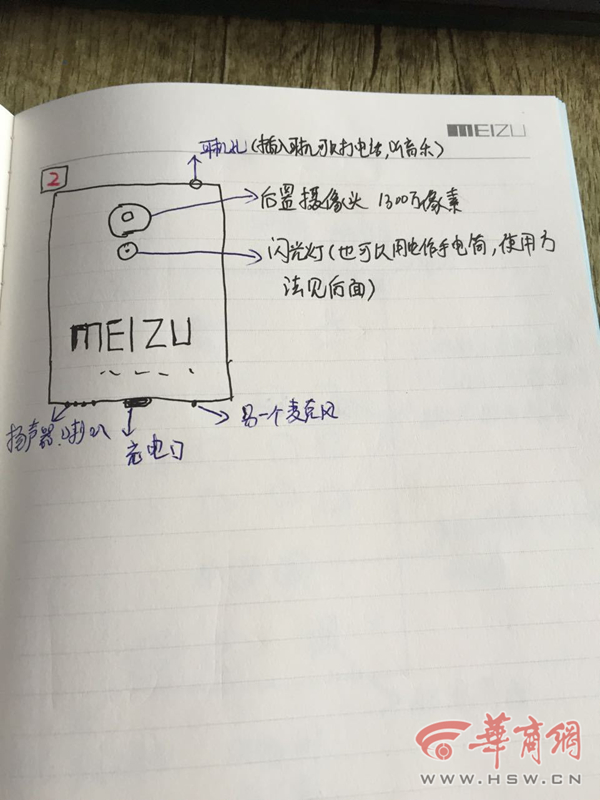 MEIZU
耳机孔(插入耳机可以打电话,听音乐)
2
后置摄像头 1300万像素
闪光灯(也可以用电作手电筒,使用方
法见后面)
MEIZU
扬声器、喇叭
充电口
另一个麦克风
華商網
WWW.HSW.CN